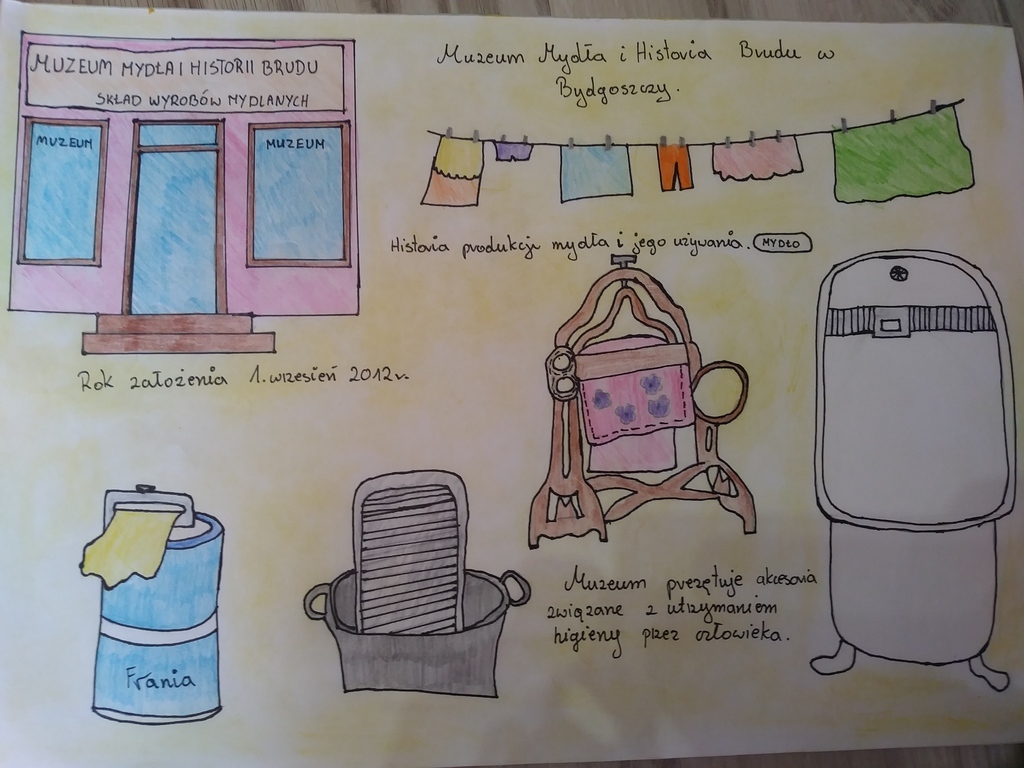 MUZEUM MYDŁA I HISTORII BRUDU
SKŁAD WYROBÓW MYDLANYCH
MUZEUM
MUZEUM
Muzeum Mydła i Historia Brudu w
Bydgoszczy.
Historia produkcji mydła i jego używania.
MYDŁO
Rok założenia 1. wrzesień 2012r.
Frania
Muzeum prezętuje akcesoria
związane z utrzymaniem
higieny przez człowieka.